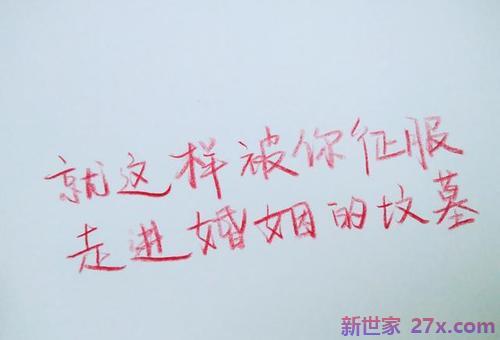 就这样被你征服
走进婚姻的坟墓
新世家 27x.com